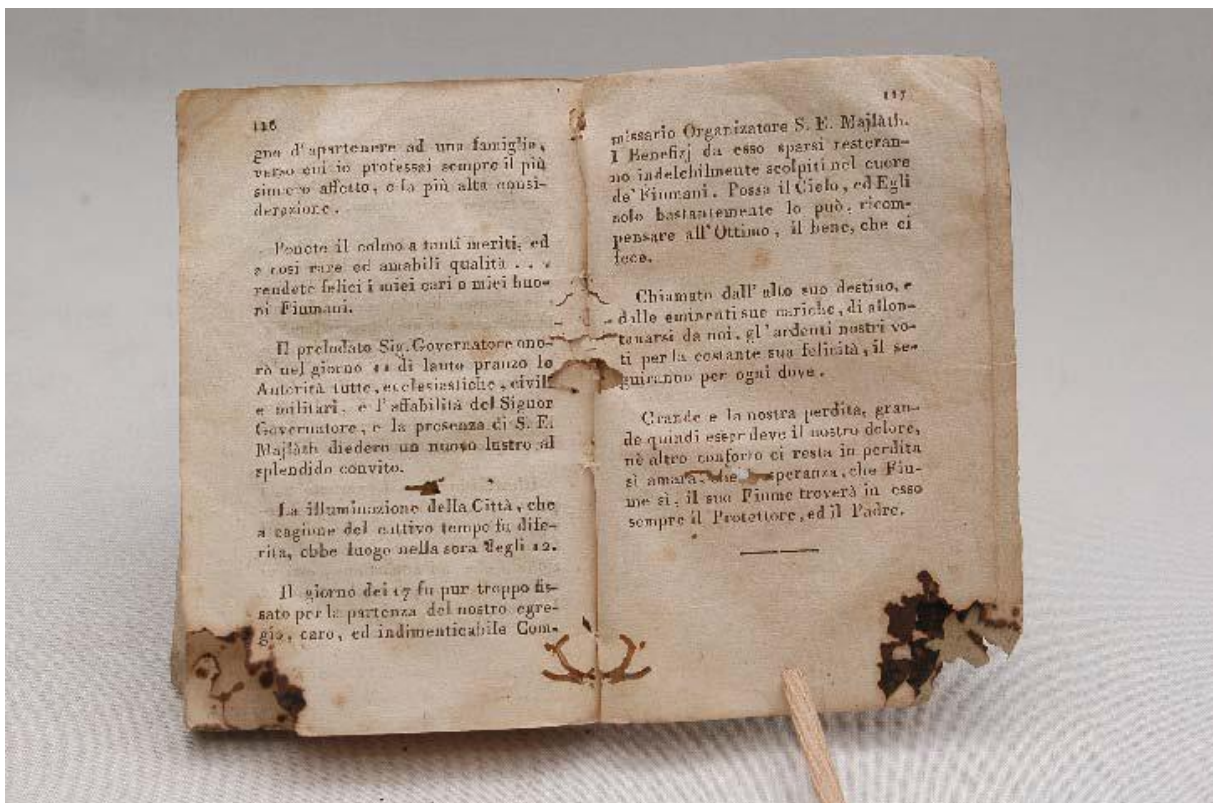 116
gno d'apartenere ad una famiglia,
verso cui io professai sempre il più
sincero affetto, e la più alta consi-
derazione.
Ponete il colmo a tanti meriti, ed
a così rare ed amabili qualità . . .
rendete felici i miei cari o miei buo-
ni Fiumani.
Il preludato Sig. Governatore ono-
rò nel giorno 11 di lauto pranzo le
Autorità tutte, ecclesiastiche, civili
e militari, e l'affabilità del Signor
Governatore, e la presenza di S. E.
Majlàth diedero un nuovo lustro al
splendido convito.
La illuminazione della Città, che
a cagione del cattivo tempo fu dife-
rita, ebbe luogo nella sera degli 12.
Il giorno dei 17 fu pur troppo fis-
sato per la partenza del nostro egre-
gio, caro, ed indimenticabile Com-
117
missario Organizatore S. E. Majlàth.
I Benefizj da esso sparsi resteran-
no indelebilmente scolpiti nel cuore
de' Fiumani. Possa il Cielo, ed Egli
solo bastantemente lo può, ricom-
pensare all'Ottimo, il bene, che ci
fece.
Chiamato dall'alto suo destino, e
dalle eminenti sue cariche, di allon-
tanarsi da noi, gl'ardenti nostri vo-
ti per la costante sua felicità, il se-
guiranno per ogni dove.
Grande e la nostra perdita, gran-
de quindi esser deve il nostro dolore,
nè altro conforto ci resta in perdita
sì amara, che speranza, che Fiu-
me sì, il suo Fiume troverà in esso
sempre il Protettore, ed il Padre.